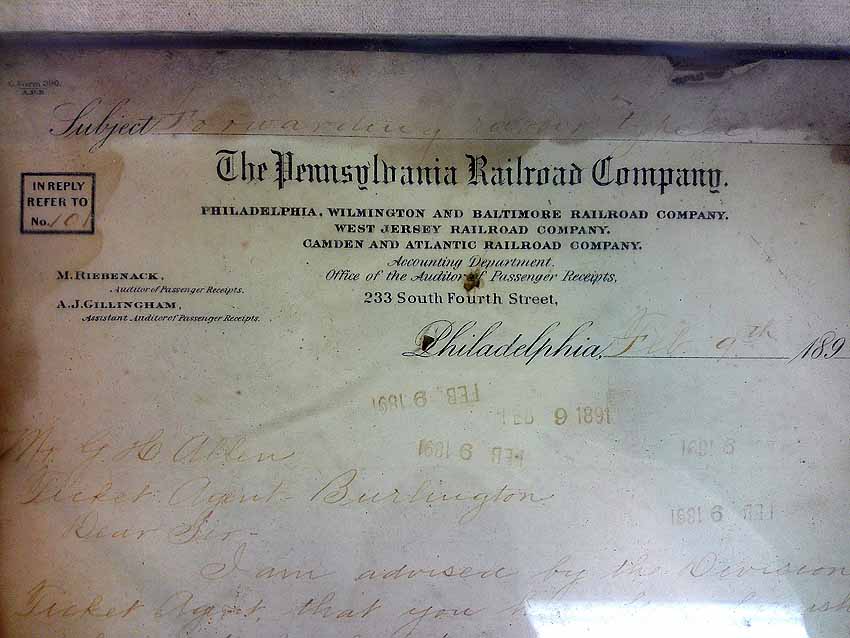 C. Form 390.
A.P.R
Subject Forwarding
The Pennsylvania Railroad Company.
IN REPLY
REFER TO
No. 101
PHILADELPHIA, WILMINGTON AND BALTIMORE RAILROAD COMPANY.
WEST JERSEY RAILROAD COMPANY.
CAMDEN AND ATLANTIC RAILROAD COMPANY.
Accounting Department.
Office of the Auditor of Passenger Receipts,
233 South Fourth Street,
M. RIEBENACK,
Auditor of Passenger Receipts.
A.J. GILLINGHAM,
Assistant Auditor of Passenger Receipts.
Philadelphia, Feb. 9th 189
FEB 9 1891
FEB 9 1891
FEB 9 1891
FEB 9 1891
FEB 9 1891
Mr G H Allen
Ticket Agent- Burlington
Dear Sir-
I am advised by the Division
Ticket Agent, that you